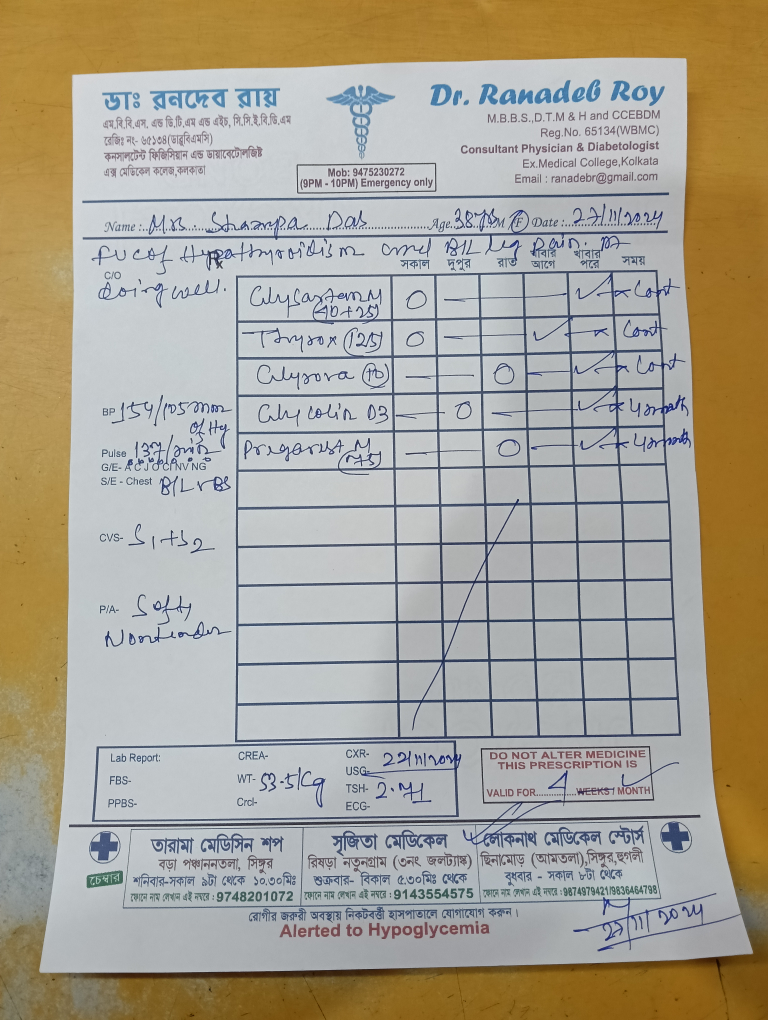 ডাঃ রনদেব রায়
এম.বি.বি.এস. এন্ড ডি.টি.এম এন্ড এইচ, সি.সি.ই.বি.ডি.এম
রেজিঃ নং- ৬৫১৩৪(ডাব্লুবিএমসি)
কনসালটেন্ট ফিজিসিয়ান এন্ড ডায়াবেটোলজিষ্ট
এক্স মেডিকেল কলেজ,কলকাতা
Mob: 9475230272
(9PM - 10PM) Emergency only
Dr. Ranadeb Roy
M.B.B.S.,D.T.M & H and CCEBDM
Reg.No. 65134(WBMC)
Consultant Physician & Diabetologist
Ex.Medical College,Kolkata
Email : ranadebr@gmail.com
Name :.. Mrs Shampa Das Age. 38 M F Date : 27/11/2024
and B/L leg pain. pt
C/O doing well.
সকাল দুপুর রাত খাবার আগে খাবার পরে সময়
(40+25) O — ✓ Cont
Thyrox (125) O — ✓ Cont
(10) — O — ✓ Cont
D3 — O — ✓ 4 month
M (75) — O — ✓ 4 month
BP 154/105 mm of Hg
Pulse 137/min
G/E- A C J O Cl NV NG
S/E - Chest B/L VBS
CVS- S1+S2
P/A- Soft,
Nontender
Lab Report:
FBS-
PPBS-
CREA-
WT- 53.5/kg
Crcl-
CXR- 22/11/2024
USG-
TSH- 2.71
ECG-
DO NOT ALTER MEDICINE
THIS PRESCRIPTION IS
VALID FOR 4 WEEKS / MONTH
চেম্বার
তারামা মেডিসিন শপ
বড়া পঞ্চাননতলা, সিঙ্গুর
শনিবার-সকাল ৯টা থেকে ১০.৩০মিঃ
ফোনে নাম লেখান এই নম্বরে : 9748201072
সৃজিতা মেডিকেল
রিষড়া নতুনগ্রাম (৩নং জলট্যাঙ্ক)
শুক্রবার- বিকাল ৫:৩০মিঃ থেকে
ফোনে নাম লেখান এই নম্বরে : 9143554575
লোকনাথ মেডিকেল স্টোর্স
ছিনামোড় (আমতলা),সিঙ্গুর,হুগলী
বুধবার - সকাল ৮টা থেকে
ফোনে নাম লেখান এই নম্বরে : 9874979421/9836464798
রোগীর জরুরী অবস্থায় নিকটবর্ত্তী হাসপাতালে যোগাযোগ করুন।
Alerted to Hypoglycemia
27/11/2024